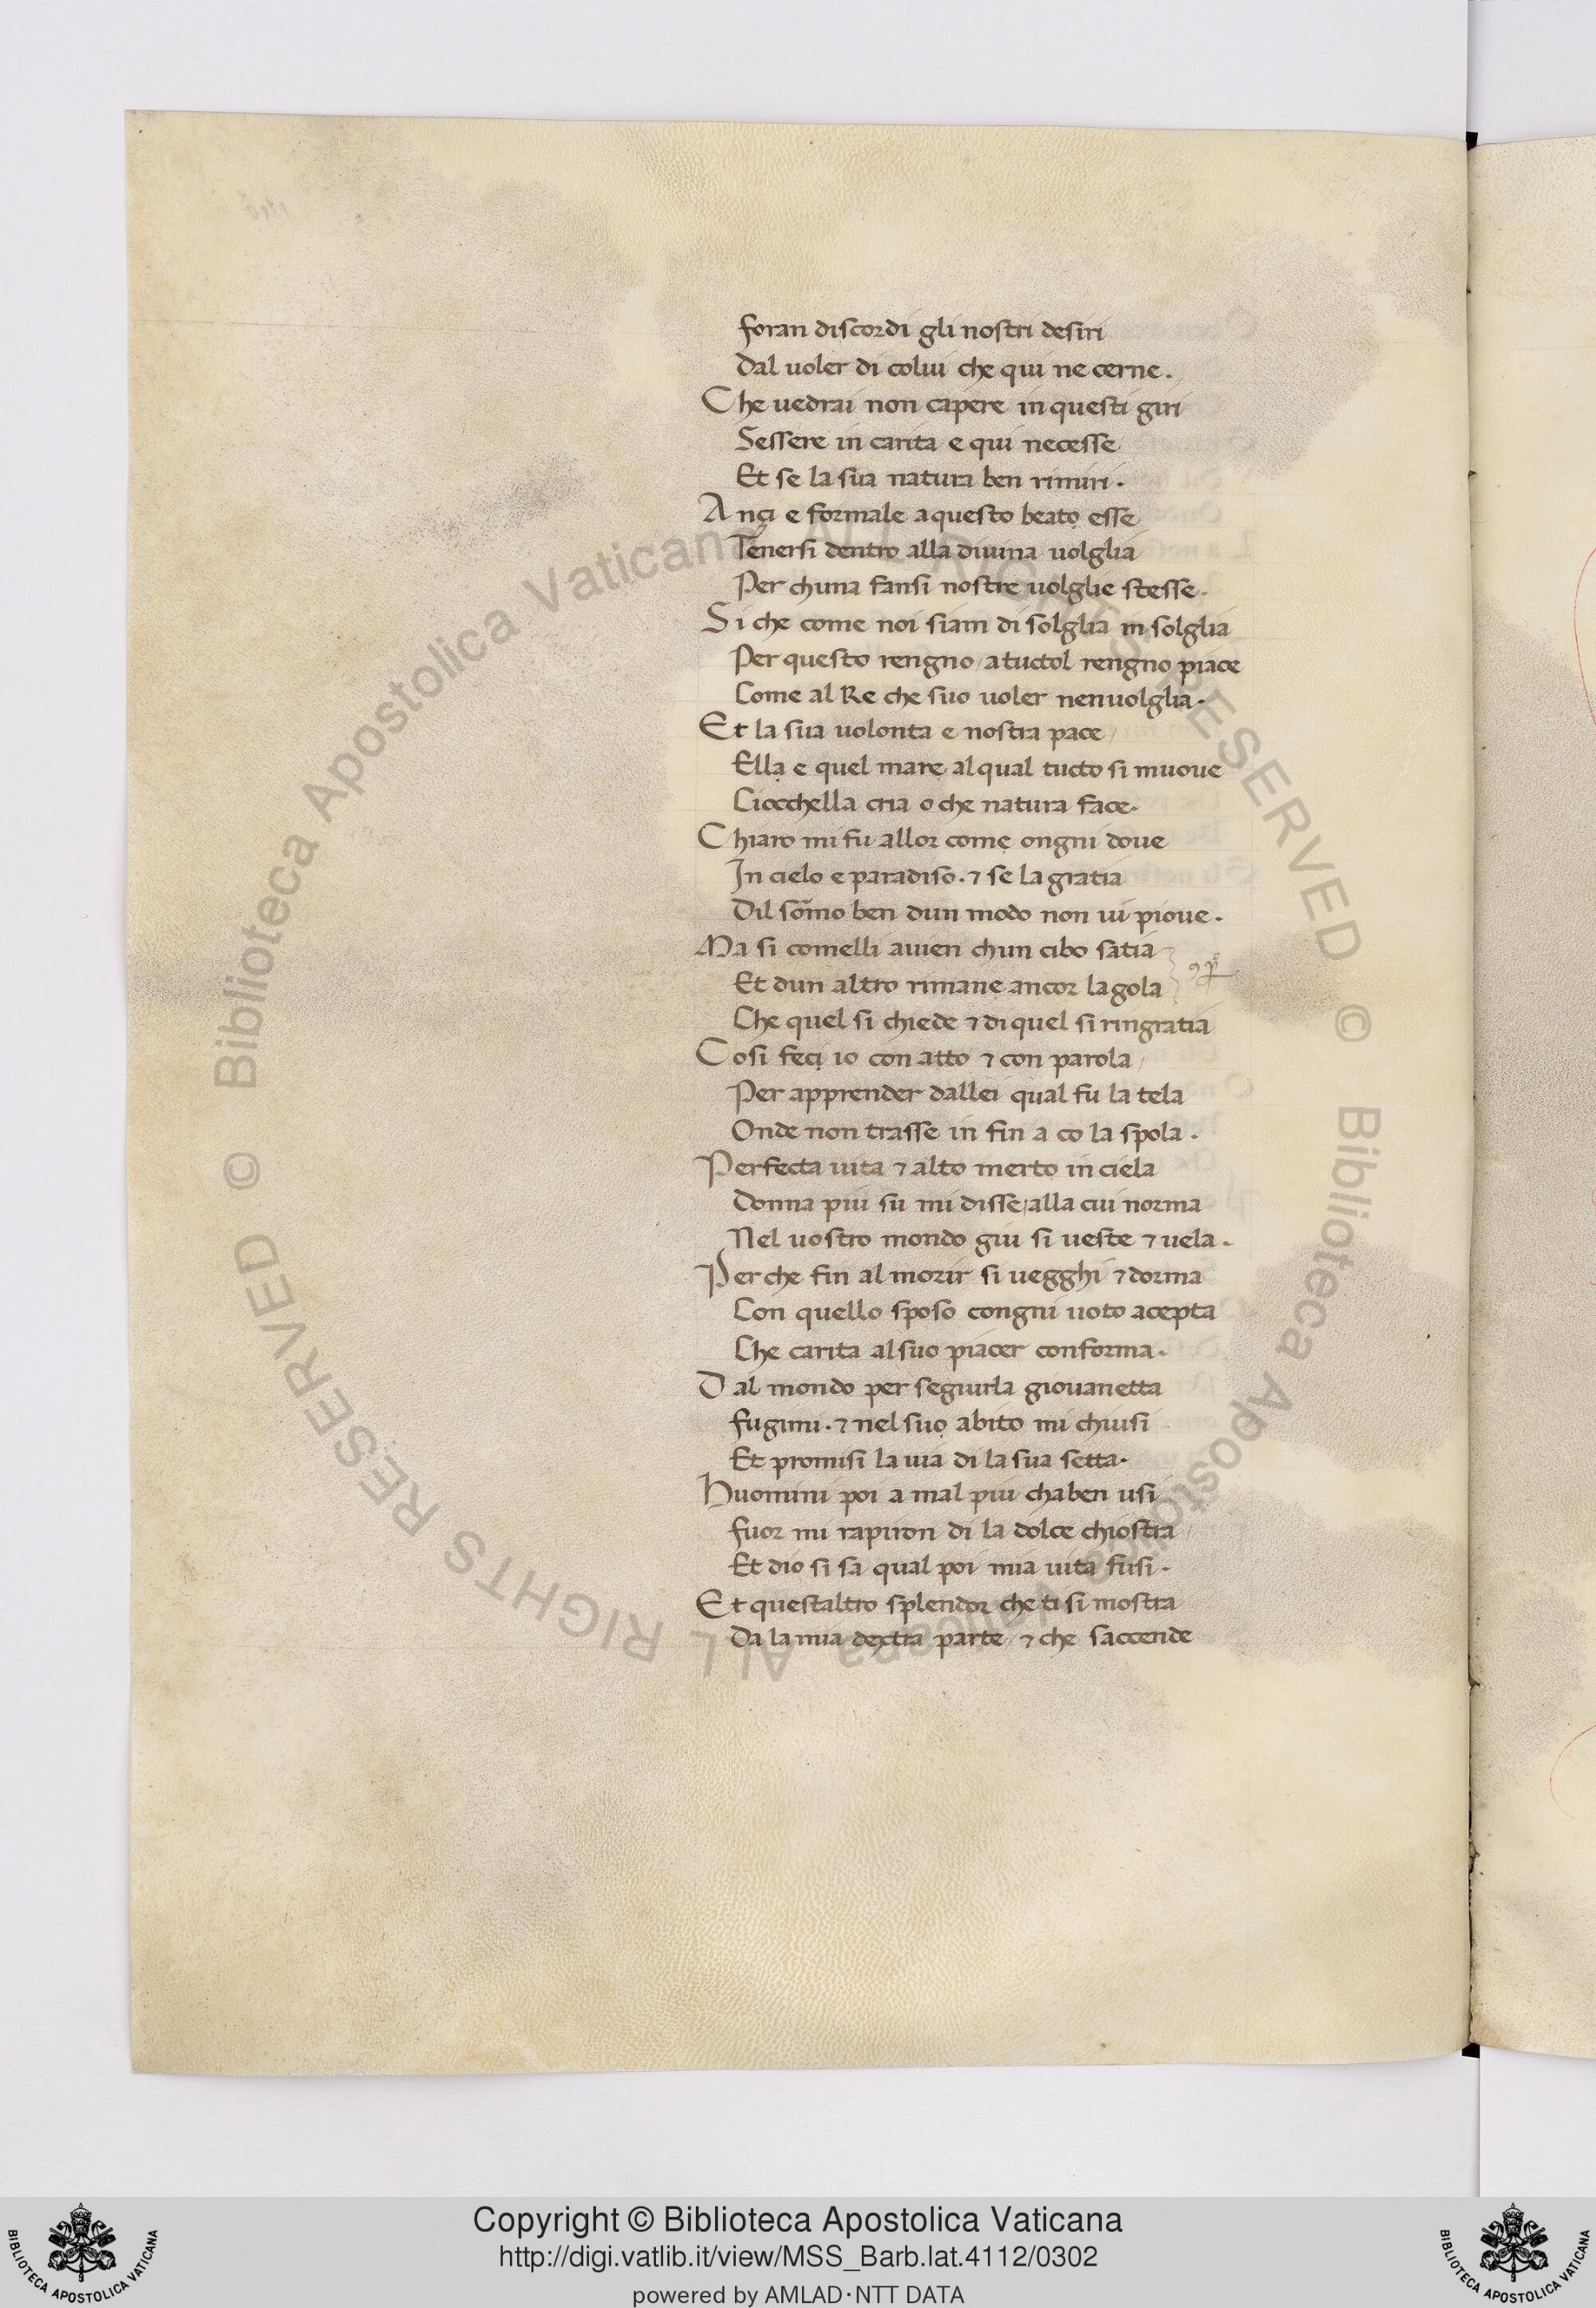 foran discordi gli nostri desiri
Dal uoler di colui che qui ne cerne.
Che uedrai non capere in questi giri
Sessere in carita e qui necesse
Et se la sua natura ben rimiri.
Ançi e formale aquesto beato esse
Tenersi dentro alla diuina uolglia
Per chuna fansi nostre uolglie stesse.
Si che come noi siam di solglia in solglia
Per questo rengno / atuctol rengno piace
Come al Re che suo uoler nenuolglia.
Et la sua uolonta e nostra pace /
Ella e quel mare alqual tucto si muoue
Ciocchella cria o che natura face.
Chiaro mi fu allor come ongni doue
In cielo e paradiso. ⁊ se la gratia
Dil sōmo ben dun modo non ui pioue.
Ma si comelli auien chun cibo satia
Et dun altro rimane ancor lagola
Che quel si chiede ⁊ di quel si ringratia
Cosi feci io con atto ⁊ con parola /
Per apprender dallei qual fu la tela
Onde non trasse in fin a co la spola.
Perfecta uita ⁊ alto merto in ciela
Donna piu su mi disse / alla cui norma
Nel uostro mondo giu si ueste ⁊ uela.
Per che fin al morir si uegghi ⁊ dorma
Con quello sposo congni uoto acepta
Che carita alsuo piacer conforma.
Dal mondo per seguirla giouanetta
fugimi. ⁊ nel suo abito mi chiusi
Et promisi la uia di la sua setta.
Huomini poi a mal piu chaben usi
fuor mi rapiron di la dolce chiostra
Et dio si sa qual poi mia uita fusi.
Et questaltro splendor che ti si mostra
Da la mia dextra parte / ⁊ che saccende
© Biblioteca Apostolica Vaticana ALL RIGHTS RESERVED © Biblioteca Apostolica Vaticana ALL RIGHTS RESERVED
Copyright © Biblioteca Apostolica Vaticana
http://digi.vatlib.it/view/MSS_Barb.lat.4112/0302
powered by AMLAD·NTT DATA
BIBLIOTECA APOSTOLICA VATICANA
BIBLIOTECA APOSTOLICA VATICANA